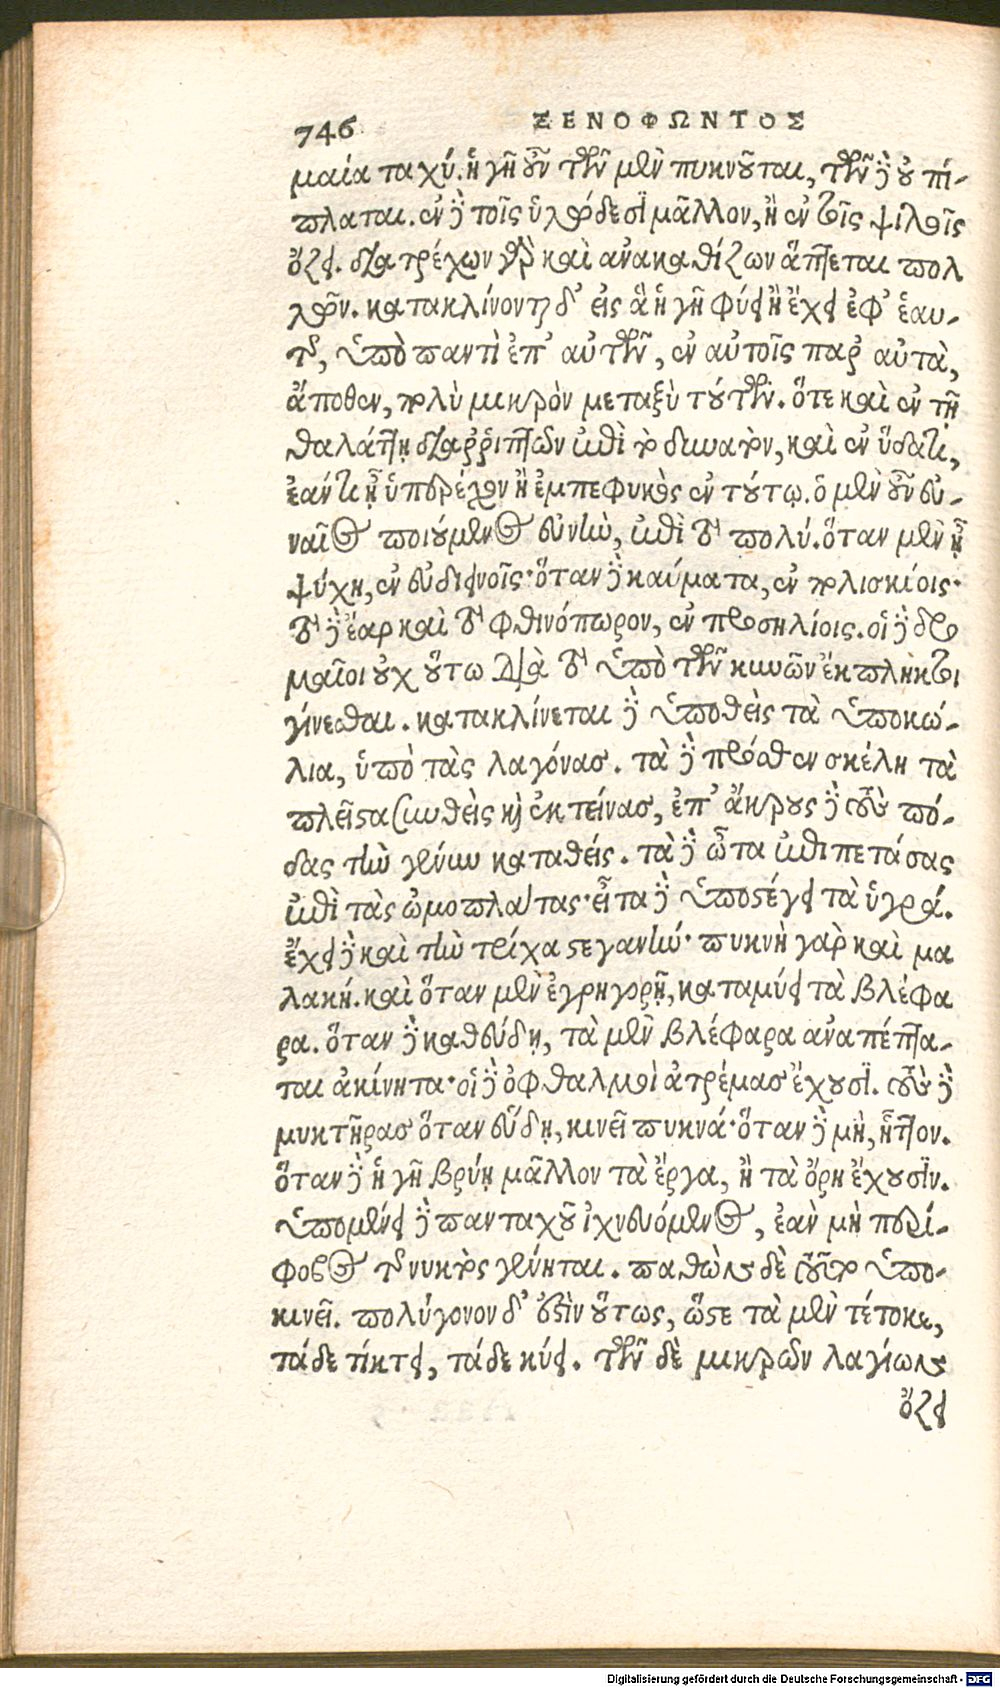 746 ΞΕΝΟΦΩΝΤΟΣ
μαία ταχύ. ἡ γῆ οὖν τῶν μὲν πυκνοῦται, τῶν δὲ οὐ πί-
πλαται. ἐν δὲ τοῖς ὑλώδεσι μᾶλλον, ἢ ἐν τοῖς ψιλοῖς
ὄζει. διατρέχων γὰρ καὶ ἀνακαθίζων ἅπτεται πολ
λῶν. κατακλίνονται δ' εἰς ἃ ἡ γῆ φύει ἢ ἔχει ἐφ' ἑαυ-
τῆς, ὑπὸ παντὶ ἐπ' αὐτῶν, ἐν αὐτοῖς παρ' αὐτὰ,
ἄποθεν, πολὺ μικρὸν μεταξὺ τούτων. ὅτε καὶ ἐν τῇ
θαλάττῃ διαρριπτῶν ἐπὶ τὸ δυνατὸν, καὶ ἐν ὕδατι,
ἐάν τι ᾖ ὑπερέχον ἢ ἐμπεφυκὸς ἐν τούτῳ. ὁ μὲν οὖν εὐ-
ναῖος ποιούμενος εὐνὴν, ἐπὶ τὸ πολύ. ὅταν μὲν ᾖ
ψύχη, ἐν εὐδιεινοῖς· ὅταν δὲ καύματα, ἐν πολισκίοις·
τὸ δὲ ἔαρ καὶ τὸ φθινόπωρον, ἐν προσηλίοις. οἱ δὲ δρο
μαῖοι οὐχ οὕτω διὰ τὸ ὑπὸ τῶν κυνῶν ἔκπληκτοι
γίνεσθαι. κατακλίνεται δὲ ὑποθεὶς τὰ ὑποκώ-
λια, ὑπὸ τὰς λαγόνας. τὰ δὲ πρόσθεν σκέλη τὰ
πλεῖστα συνθεὶς καὶ ἐκτείνας, ἐπ' ἄκρους δὲ τοὺς πό-
δας τὴν γένυν καταθείς. τὰ δὲ ὦτα ἐπιπετάσας
ἐπὶ τὰς ὠμοπλάτας· εἶτα δὲ ὑποστέγει τὰ ὑγρά.
ἔχει δὲ καὶ τὴν τρίχα στεγανήν· πυκνὴ γὰρ καὶ μα
λακή. καὶ ὅταν μὲν ἐγρηγορῇ, καταμύει τὰ βλέφα
ρα. ὅταν δὲ καθεύδῃ, τὰ μὲν βλέφαρα ἀναπέπτα-
ται ἀκίνητα· οἱ δὲ ὀφθαλμοὶ ἀτρέμας ἔχουσι. τοὺς δὲ
μυκτῆρας ὅταν εὕδῃ, κινεῖ πυκνά· ὅταν δὲ μὴ, ἧττον.
ὅταν δὲ ἡ γῆ βρύῃ μᾶλλον τὰ ἔργα, ἢ τὰ ὄρη ἔχουσιν.
ὑπομένει δὲ πανταχοῦ ἰχνευόμενος, ἐὰν μὴ περί-
φοβος τῆς νυκτὸς γένηται. παθὼν δὲ τοῦτο ὑπο-
κινεῖ. πολύγονον δ' ἐστὶν οὕτως, ὥστε τὰ μὲν τέτοκε,
τάδε τίκτει, τάδε κύει. τῶν δὲ μικρῶν λαγίων
ὄζει
Digitalisierung gefördert durch die Deutsche Forschungsgemeinschaft - DFG